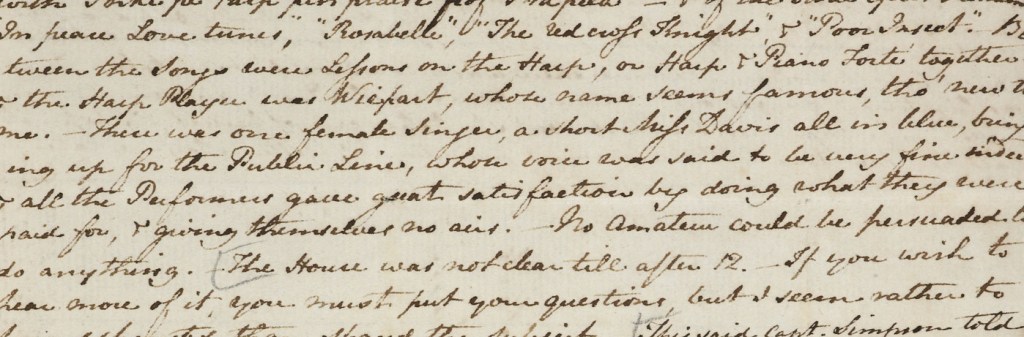 In peace Love tunes", "Rosabelle", "The red cross Knight", & "Poor Insect". Be
tween the Songs were Lessons on the Harp, or Harp & Piano Forte together
& the Harp Player was Wiepart, whose name seems famous, tho' new to
me. — There was one female Singer, a short Miss Davis all in blue, bring
ing up for the Public Line, whose voice was said to be very fine indeed
& all the Performers gave great satisfaction by doing what they were
paid for, & giving themselves no airs. — No Amateur could be persuaded to
do anything. The House was not clear till after 12. — If you wish to
hear more of it, you must put your questions, but I seem rather to
the subject. This said Capt. Simpson told